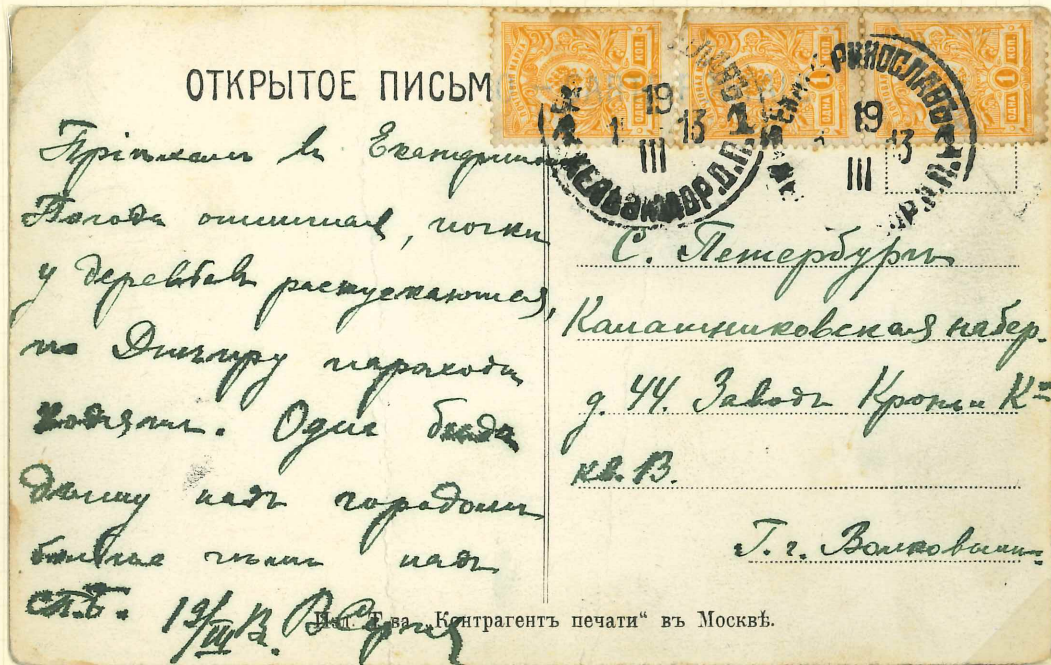 ОТКРЫТОЕ ПИСЬМ
Пріѣхалъ въ Екатерино
Погода отличная, почки
у деревьевъ распускаются,
по Днѣпру пароходы
ходятъ. Одна бѣда
дыму надъ городомъ
больше чѣмъ надъ
СПБ. 19/III 13.
1 КОП.
ОДНА
1 КОП.
ОДНА
1 КОП.
ОДНА
19 III 13
ЖЕЛѢЗНОДОР.П.О.
ЕКАТЕРИНОСЛАВЪ
19 III 13
С. Петербургъ
Калашниковская набер.
д. 44. Заводъ Кронъ и Кº
кв. 13.
Г. г. Волковымъ
Изд. Т-ва „Контрагентъ печати“ въ Москвѣ.